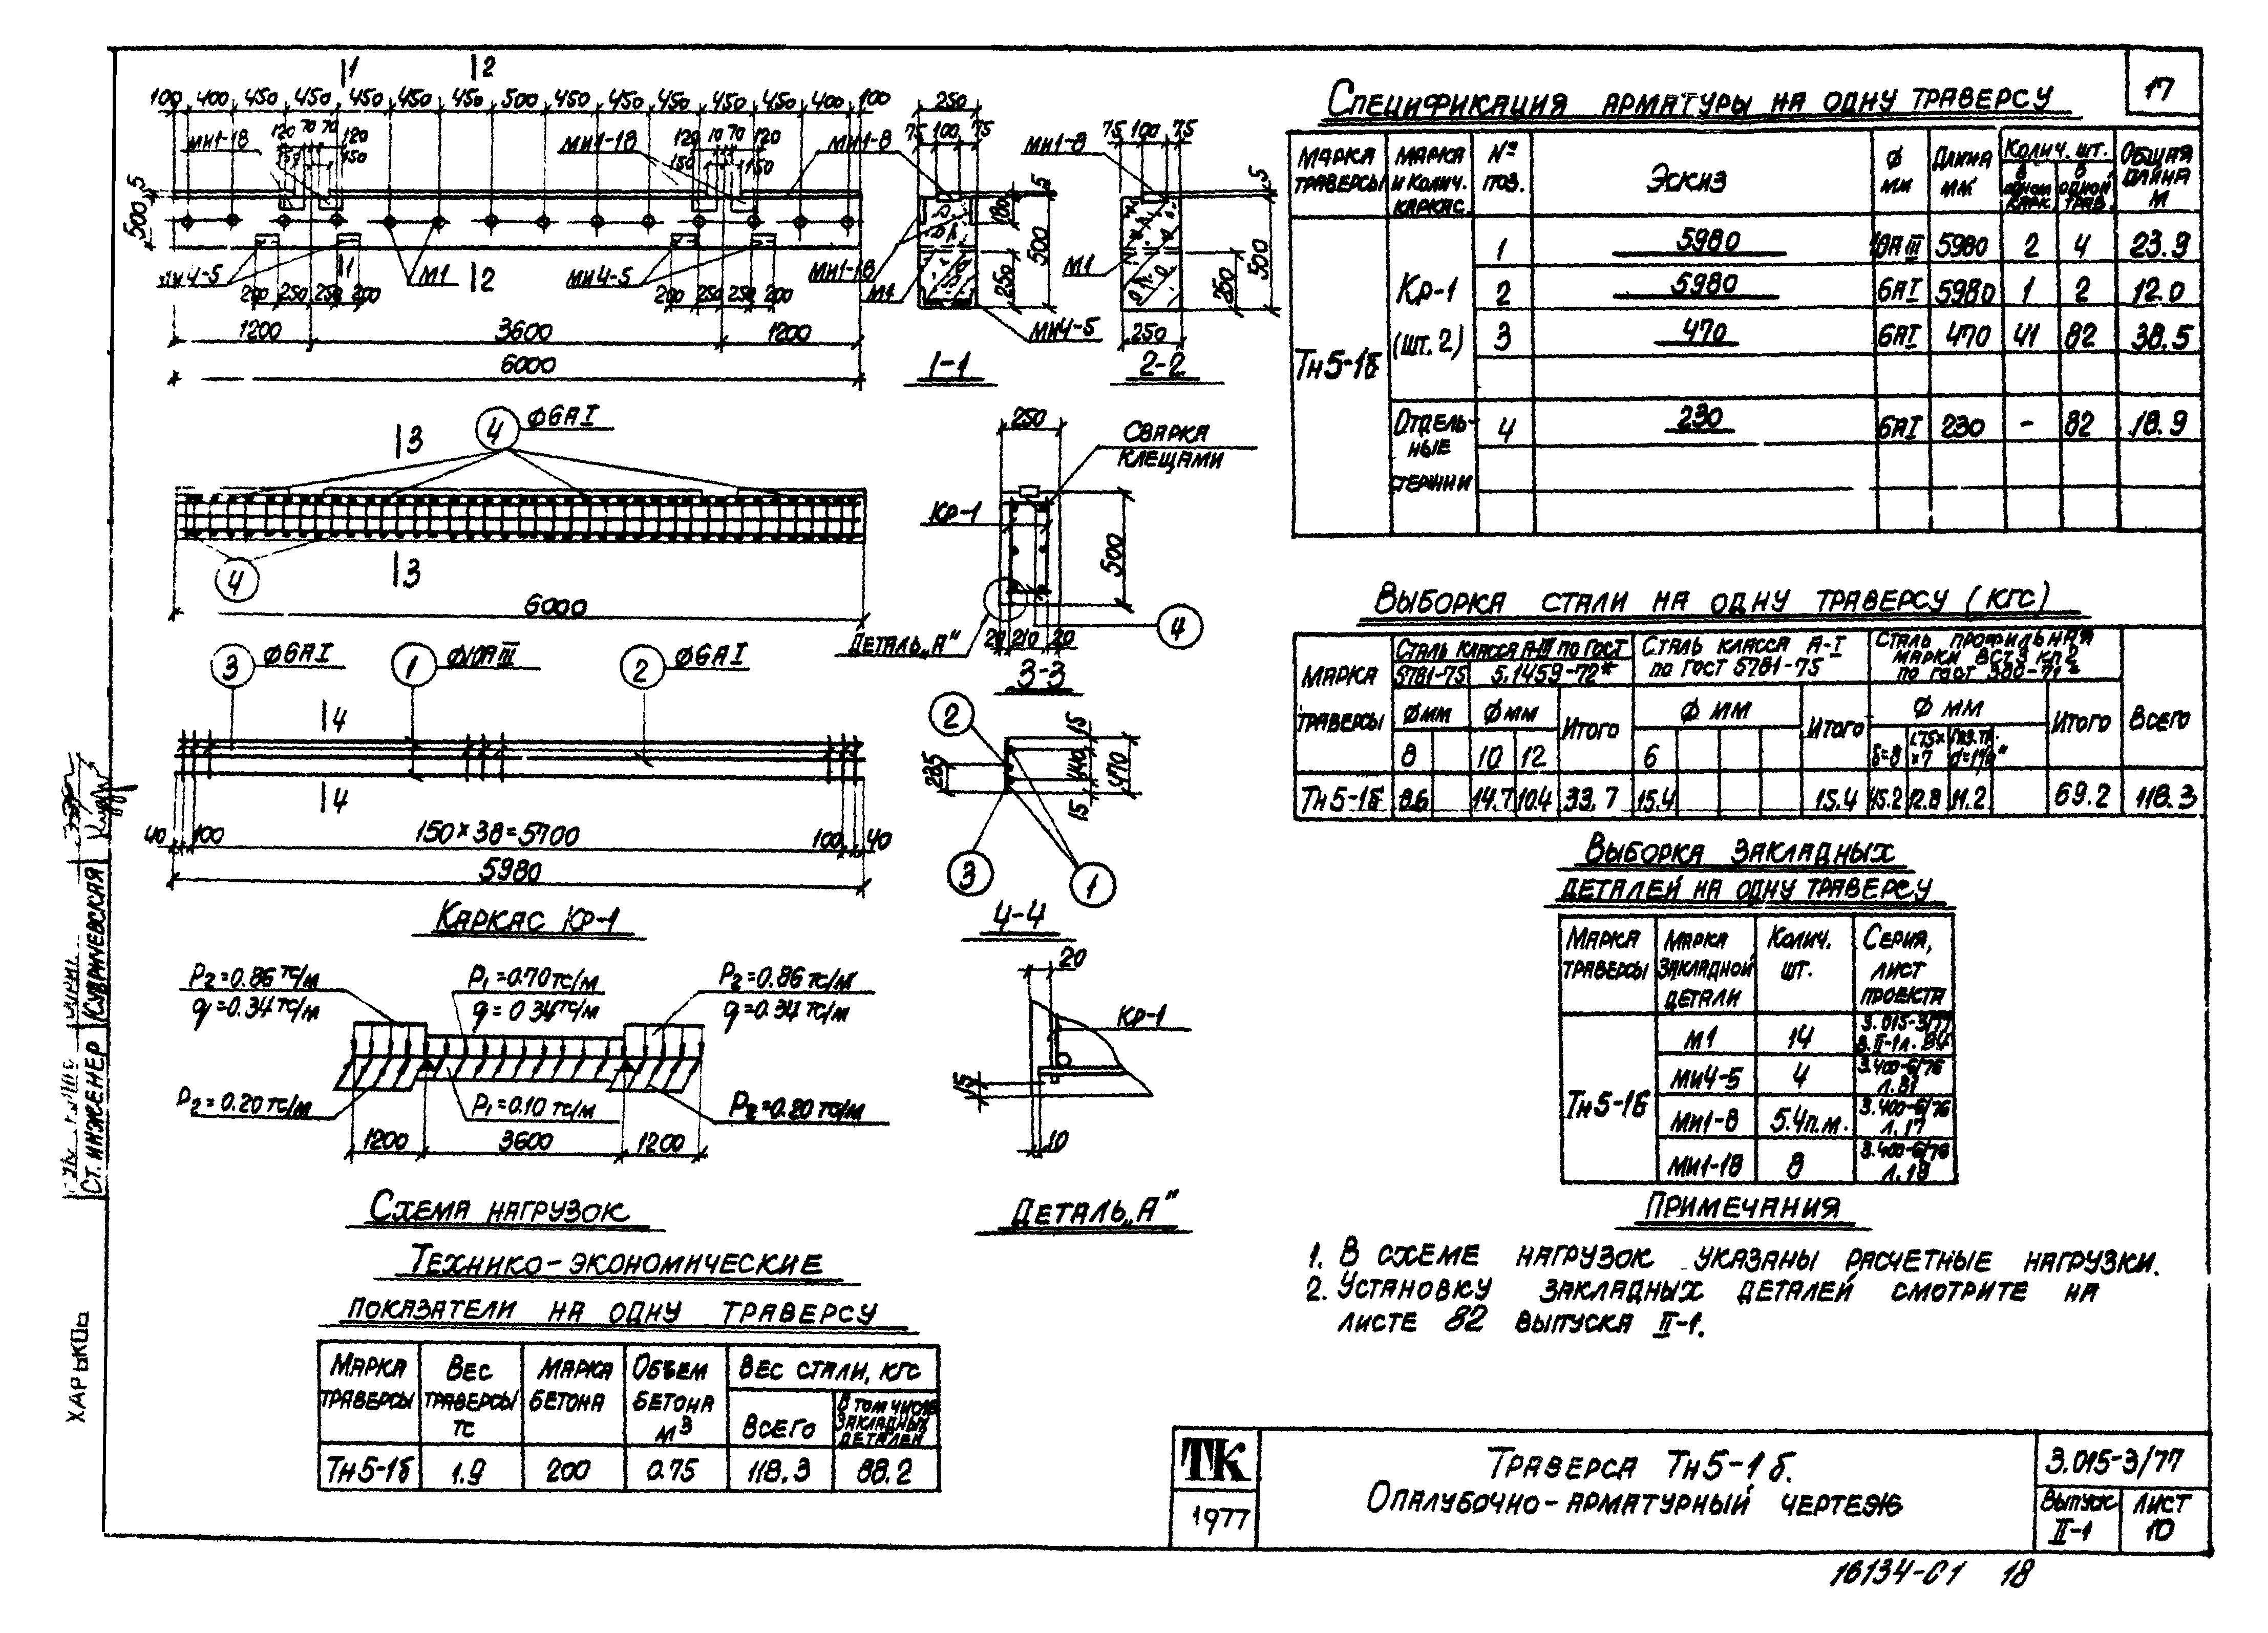 17
1 2
100 400 450 450 450 450 450 500 450 450 450 450 450 400 100
МИ1-18 120 70 70 120 МИ1-18 120 70 70 120 МИ1-8
150 150 150
5
500
МИ4-5 1 М1 2 МИ4-5
200 250 250 200 200 250 250 200
1200 3600 1200
6000
250
75 100 75
5
180
500
250
МИ1-18
М1
МИ4-5
1-1
75 100 75
МИ1-8
5
М1
250
500
250
2-2
3 4 Ф6АI
4 3
6000
250
СВАРКА
КЛЕЩАМИ
КР-1
500
ДЕТАЛЬ „А"
20 210 20
4
3-3
3 Ф6АI 1 Ф10АIII 2 Ф6АI
4
4
40 100 150×38=5700 100 40
5980
КАРКАС КР-1
2
15
235
440
470
15
3 1
4-4
P2=0.86 тс/м P1=0.70 тс/м P2=0.86 тс/м
q=0.34 тс/м q=0 34 тс/м q=0.34 тс/м
P2=0.20 тс/м P1=0.10 тс/м P2=0.20 тс/м
1200 3600 1200
СХЕМА НАГРУЗОК
20
КР-1
15
10
ДЕТАЛЬ „А"
ТЕХНИКО-ЭКОНОМИЧЕСКИЕ
ПОКАЗАТЕЛИ НА ОДНУ ТРАВЕРСУ
МАРКА ТРАВЕРСЫ ВЕС ТРАВЕРСЫ ТС МАРКА БЕТОНА ОБЪЕМ БЕТОНА М3 ВЕС СТАЛИ, КГС
ВСЕГО В ТОМ ЧИСЛЕ ЗАКЛАДНЫХ ДЕТАЛЕЙ
ТН5-1б 1.9 200 0.75 118.3 88.2
СПЕЦИФИКАЦИЯ АРМАТУРЫ НА ОДНУ ТРАВЕРСУ
МАРКА ТРАВЕРСЫ МАРКА И КОЛИЧ. КАРКАС. № ПОЗ. ЭСКИЗ Ф ММ ДЛИНА ММ КОЛИЧ. ШТ. В ОДНОМ КАРК. В ОДНОЙ ТРАВ. ОБЩАЯ ДЛИНА М
ТН5-1б КР-1 (ШТ. 2)
1 5980 10АIII 5980 2 4 23.9
2 5980 6АI 5980 1 2 12.0
3 470 6АI 470 41 82 38.5
ОТДЕЛЬНЫЕ СТЕРЖНИ 4 230 6АI 230 - 82 18.9
ВЫБОРКА СТАЛИ НА ОДНУ ТРАВЕРСУ (КГС)
МАРКА ТРАВЕРСЫ СТАЛЬ КЛАССА А-III ПО ГОСТ СТАЛЬ КЛАССА А-I ПО ГОСТ 5781-75 СТАЛЬ ПРОФИЛЬНАЯ МАРКИ ВСТ3 КП2 ПО ГОСТ 380-71* ВСЕГО
5781-75 5.1459-72*
Ф ММ Ф ММ ИТОГО Ф ММ ИТОГО Ф ММ ИТОГО
8 10 12 6 δ=8 L75××7
ТН5-1б 8.6 14.7 10.4 33.7 15.4 15.4 45.2 12.8 11.2 69.2 118.3
ВЫБОРКА ЗАКЛАДНЫХ
ДЕТАЛЕЙ НА ОДНУ ТРАВЕРСУ
МАРКА ТРАВЕРСЫ МАРКА ЗАКЛАДНОЙ ДЕТАЛИ КОЛИЧ. ШТ. СЕРИЯ, ЛИСТ ПРОЕКТА
ТН5-1б
М1 14 3.015-3/77 В.II-1 Л. 84
МИ4-5 4 3.400-6/76 Л.31
МИ1-8 5.4п.м. 3.400-6/76 Л.17
МИ1-18 8 3.400-6/76 Л.19
ПРИМЕЧАНИЯ
1. В СХЕМЕ НАГРУЗОК УКАЗАНЫ РАСЧЕТНЫЕ НАГРУЗКИ.
2. УСТАНОВКУ ЗАКЛАДНЫХ ДЕТАЛЕЙ СМОТРИТЕ НА
ЛИСТЕ 82 ВЫПУСКА II-1.
ТК
1977
ТРАВЕРСА ТН5-1б.
ОПАЛУБОЧНО-АРМАТУРНЫЙ ЧЕРТЕЖ
3.015-3/77
ВЫПУСК II-1
ЛИСТ 10
16134-01 18
СТ. ИНЖЕНЕР КУДРИЧЕВСКАЯ